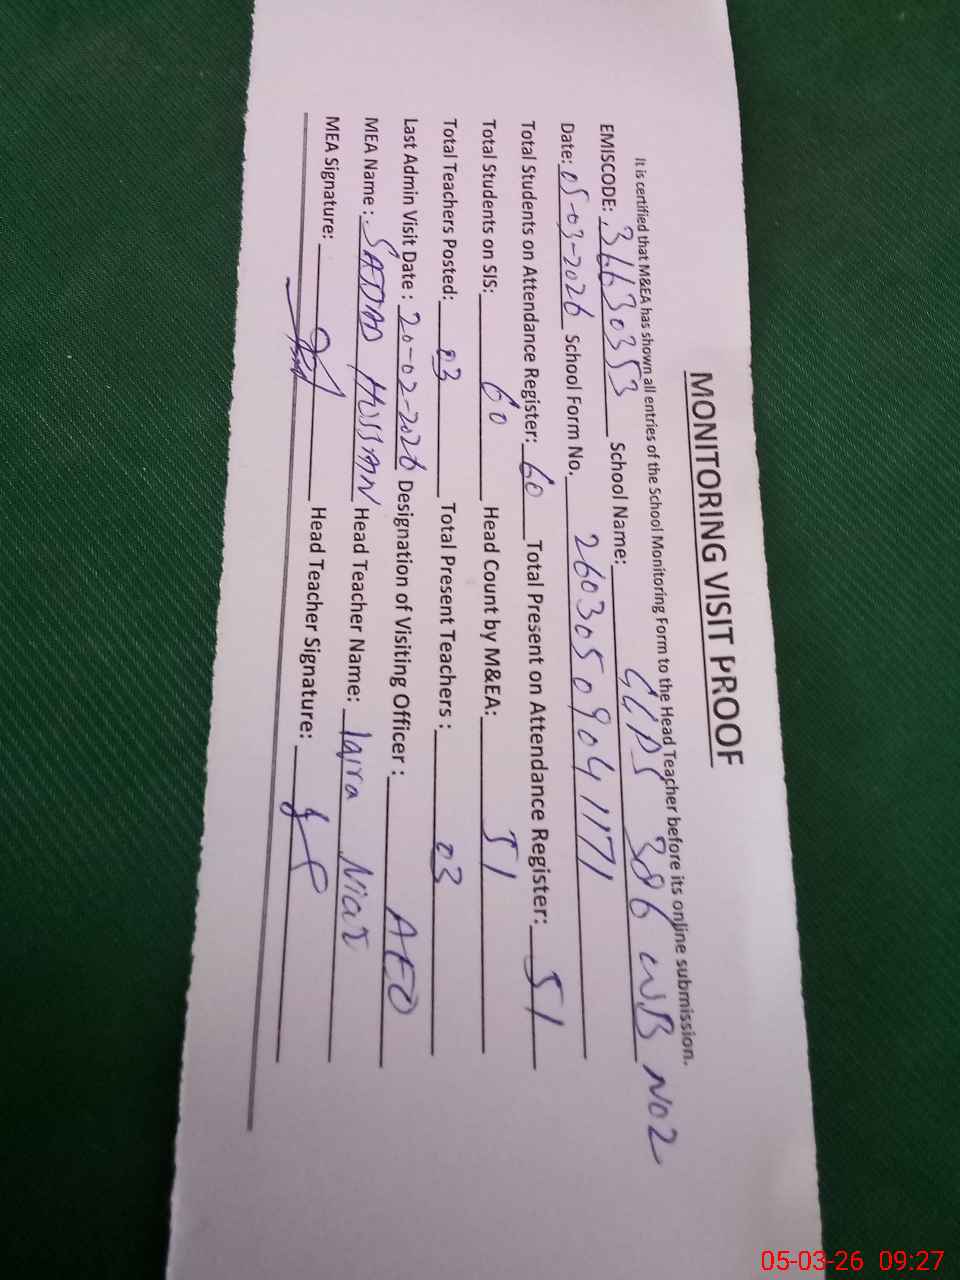 MONITORING VISIT PROOF
It is certified that M&EA has shown all entries of the School Monitoring Form to the Head Teacher before its online submission.
EMISCODE: 36630353 School Name: GGPS 386 WB NO2
Date: 05-03-2026 School Form No. 26030509041171
Total Students on Attendance Register: 60 Total Present on Attendance Register: 51
Total Students on SIS: 60 Head Count by M&EA: 51
Total Teachers Posted: 03 Total Present Teachers : 03
Last Admin Visit Date : 20-02-2026 Designation of Visiting Officer : AEO
MEA Name : HUSSAIN Head Teacher Name: Iqra
MEA Signature: Head Teacher Signature:
05-03-26 09:27